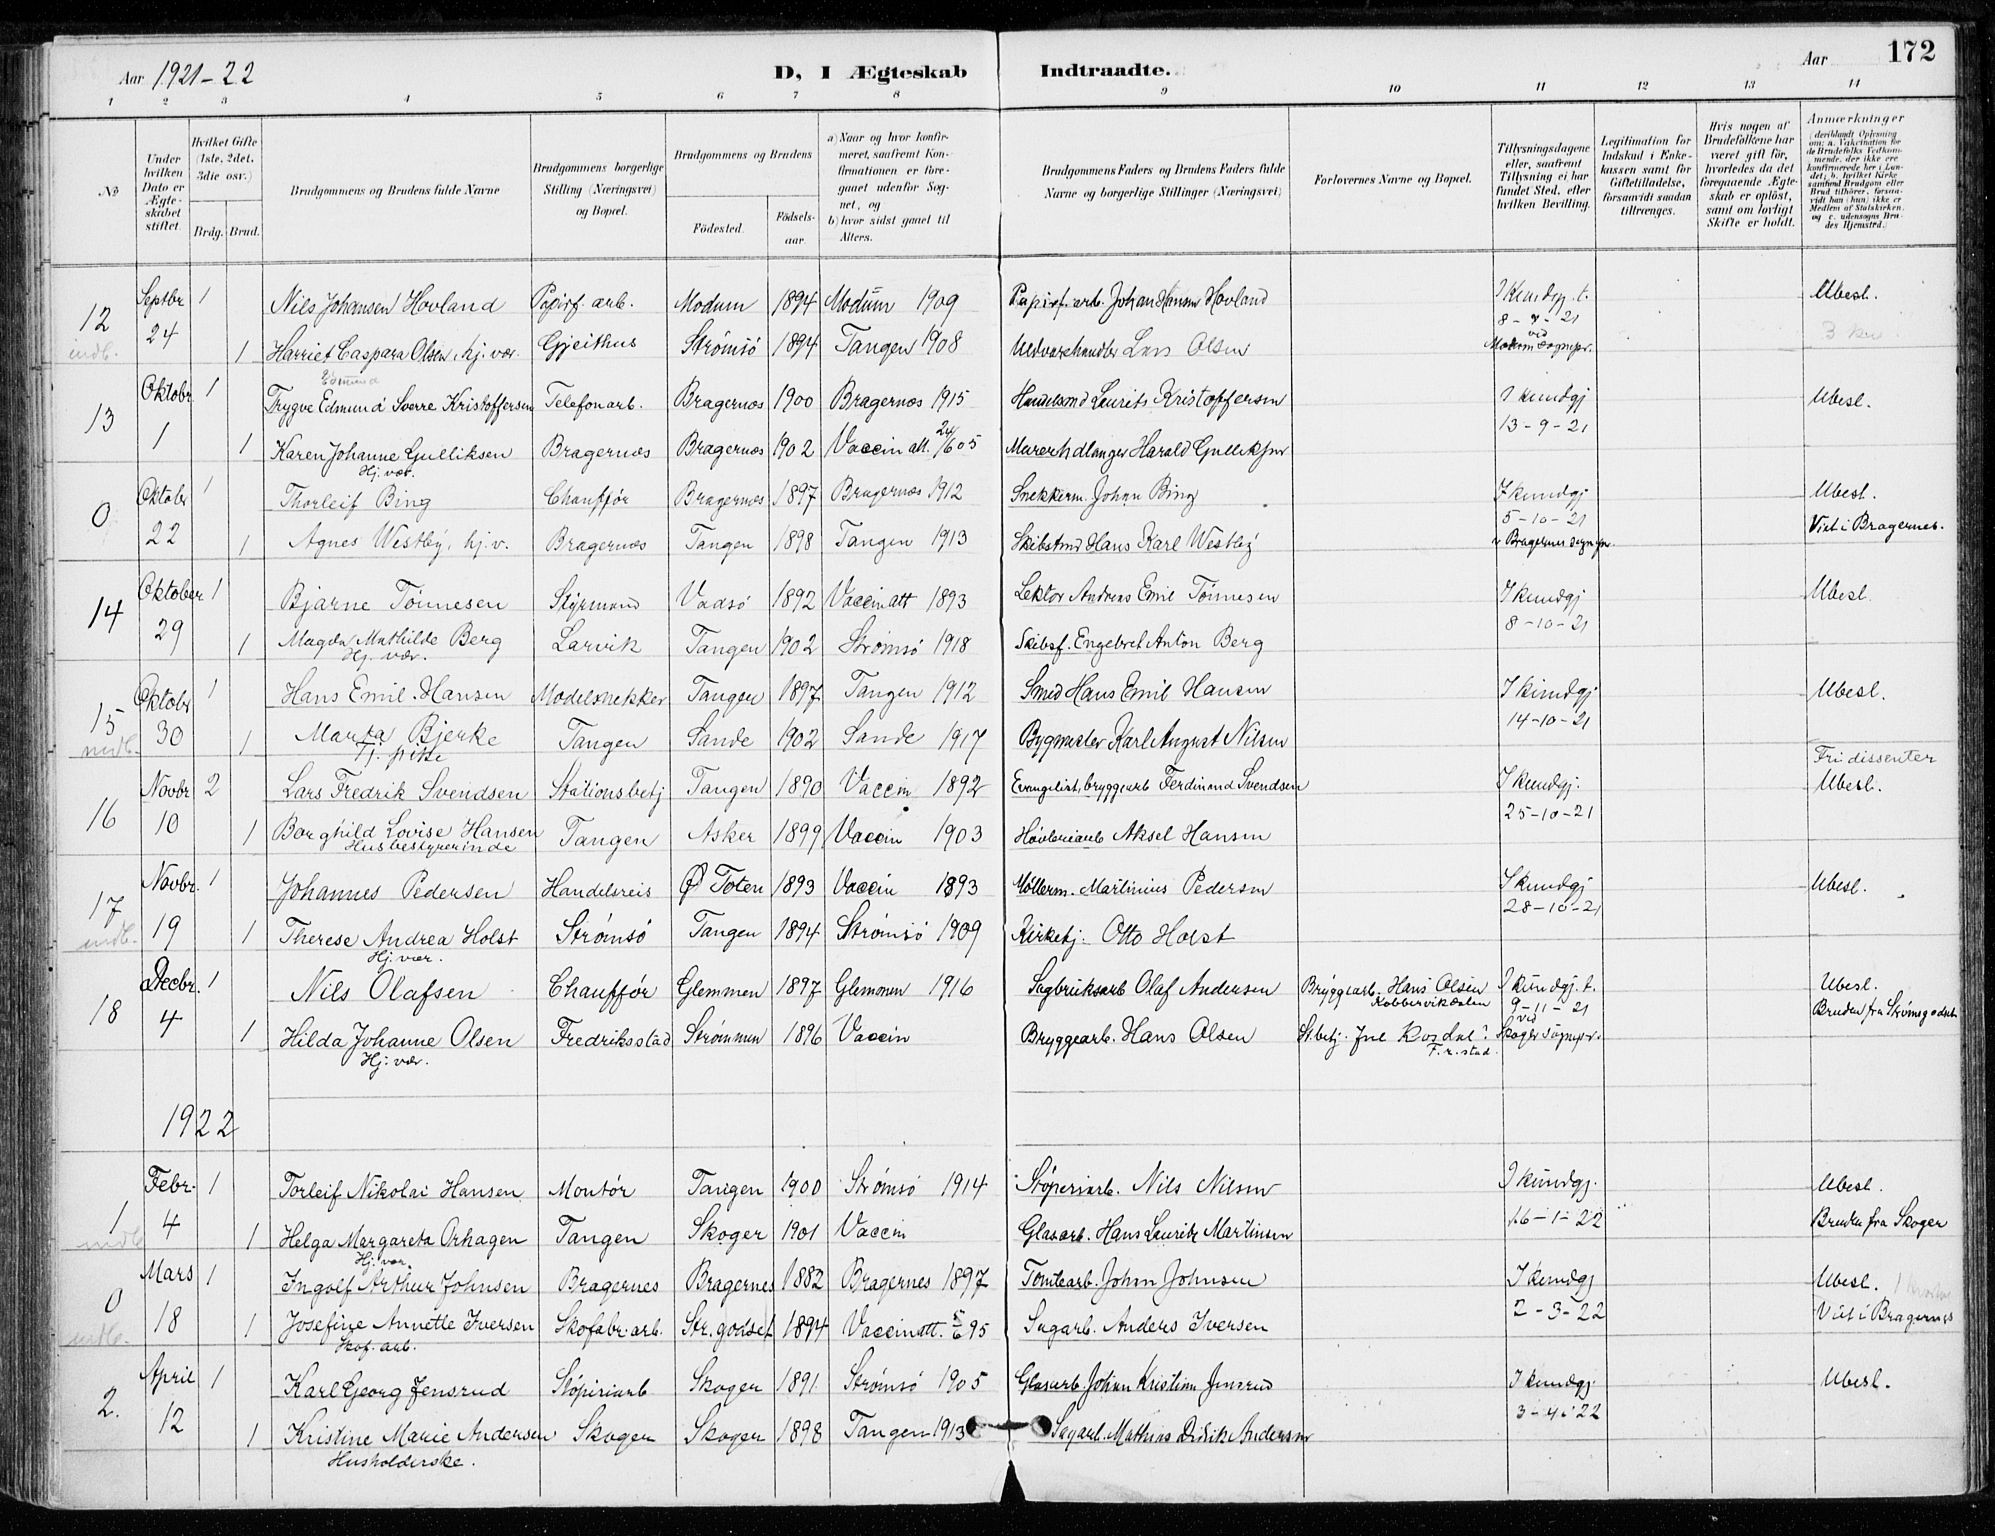 Aar 1921-22
D, I Ægteskab Indtraadte.
Aar 172
1 2 3 4 5 6 7 8 9 10 11 12 13 14
№
Under hvilken Dato er Ægteskabet stiftet.
Hvilket Gifte (1ste, 2det, 3die osv.)
Brdg. Brud.
Brudgommens og Brudens fulde Navne
Brudgommens borgerlige Stilling (Næringsvei) og Bopæl.
Brudgommens og Brudens
Födested. Födsels-aar.
a) Naar og hvor konfirmeret, saafremt Konfirmationen er foregaaet udenfor Sognet, og
b) hvor sidst gaaet til Alters.
Brudgommens Faders og Brudens Faders fulde Navne og borgerlige Stillinger (Næringsvei)
Forlovernes Navne og Bopæl.
Tillysningsdagene eller, saafremt Tillysning ei har fundet Sted, efter hvilken Bevilling.
Legitimation for Indskud i Enkekassen samt for Giftetilladelse, forsaavidt saadan tiltrænges.
Hvis nogen af Brudefolkene har været gift för, hvorledes da det foregaaende Ægteskab er oplöst, samt om lovligt Skifte er holdt.
Anmærkninger
(deriblandt Oplysning om: a. Vakcination for de Brudefolks Vedkommende, der ikke ere konfirmerede her i Landet; b. hvilket Kirkesamfund Brudgom eller Brud tilhörer, forsaavidt han (hun) ikke er Medlem af Statskirken, og c. udensogns Brudes Hjemsted.)
12 Septbr 1 Nils Johansen Hovland Papirf. arb. Modum 1894 Modum 1909 Papirf. arb. Johan Hansen Hovland I Kundgj. t. Ubesl.
indb. 24 8-9-21
1 Harriet Caspara Olsen, hj. vær. Gjeithus Strømsö 1894 Tangen 1908 Uldvarehandler Lars Olsen ved Modum Sognepr.
13 Oktobr 1 Trygve Edmund Sverre Kristoffersen Telefonarb. Bragernæs 1900 Bragernæs 1915 Handelsmd Laurits Kristoffersen I kundgj Ubesl.
1 13-9-21
1 Karen Johanne Gulliksen Bragernæs Bragernæs 1902 Vaccin att. 24/6 05 Murerhdlanger Harald Gulliksen
Hj. vær.
0 Oktobr 1 Thorleif Bing Chauffør Bragernæs 1897 Bragernæs 1912 Snekkerm. Johan Bing I kundgj Ubesl.
22 5-10-21 Viet i Bragernes.
1 Agnes Westby, hj. v. Bragernæs Tangen 1898 Tangen 1913 Skibstmd Hans Karl Westby v Bragernes sognepr.
14 Oktober 1 Bjarne Tönnesen Styrmand Vadsö 1892 Vaccin att 1893 Lektor Andreas Emil Tönnesen I kundgj Ubesl.
29 8-10-21
1 Magda Mathilde Berg Larvik Tangen 1902 Strømsö 1918 Skibsf. Engebret Anton Berg
Hj. vær.
15 Oktobr 1 Hans Emil Hansen Modelsnekker Tangen 1897 Tangen 1912 Smed Hans Emil Hansen I kundgj Ubesl.
indb. 30 14-10-21
1 Marta Bjerke Tangen Sande 1902 Sande 1917 Bygmester Karl August Nilsen
Tj. pike
Fri dissenter
16 Novbr 2 Lars Fredrik Svendsen Stationsbetj Tangen 1890 Vaccin 1892 Evangelist, bryggearb Ferdinand Svendsen I kundgj. Ubesl.
10 25-10-21
1 Borghild Lovise Hansen Tangen Asker 1899 Vaccin 1903 Høvleriarb Aksel Hansen
Husbestyrerinde
17 Novbr. 1 Johannes Pedersen Handelsreis Ø Toten 1893 Vaccin 1893 Möllerm. Martinius Pedersen I kundgj Ubesl.
indb. 19 28-10-21
1 Therese Andrea Holst Strømsö Tangen 1894 Strømsö 1909 Kirketj. Otto Holst
Hj. vær.
18 Decbr. 1 Nils Olafsen Chauffør Glemmen 1897 Glemmen 1916 Sagbruksarb Olaf Andersen Bryggearb. Hans Olsen Kobbervikdalen I kundgj. t. Ubesl.
4 9-11-21 Bruden fra Strømsgodset
1 Hilda Johanne Olsen Fredriksstad Strømmen 1896 Vaccin Bryggearb. Hans Olsen St. betj. F. r. stad. ved Skoger sognepr.
Hj. vær.
1922
1 Febr. 1 Torleif Nikolai Hansen Montör Tangen 1900 Strømsö 1914 Støperiarb. Nils Nilsen I kundgj. Ubesl.
indb 4 16-1-22 Bruden fra Skoger
1 Helga Margareta Orhagen Tangen Skoger 1901 Vaccin Glasarb. Hans Lauritz Martinsen
Hj. vær.
0 Mars 1 Ingolf Arthur Johnsen Bragernes Bragernes 1882 Bragernes 1897 Tomtearb. John Johnsen I kundgj Ubesl.
indb. 18 2-3-22 Viet i Bragernes
1 Josefine Annette Iversen Skofabr. arb. Str. godset 1894 Vaccin att. 5/6 95 Sagarb. Anders Iversen
Skof. arb.
2. April 1 Karl Georg Jensrud Støperiarb Skoger 1891 Strømsö 1905 Glasarb Johan Kristian Jensrud I kundgj. Ubesl.
12 3-4-22
1 Kristine Marie Andersen Skoger Skoger 1898 Tangen 1913 Sagarb. Mathias Didrik Andersen
Husholderske.